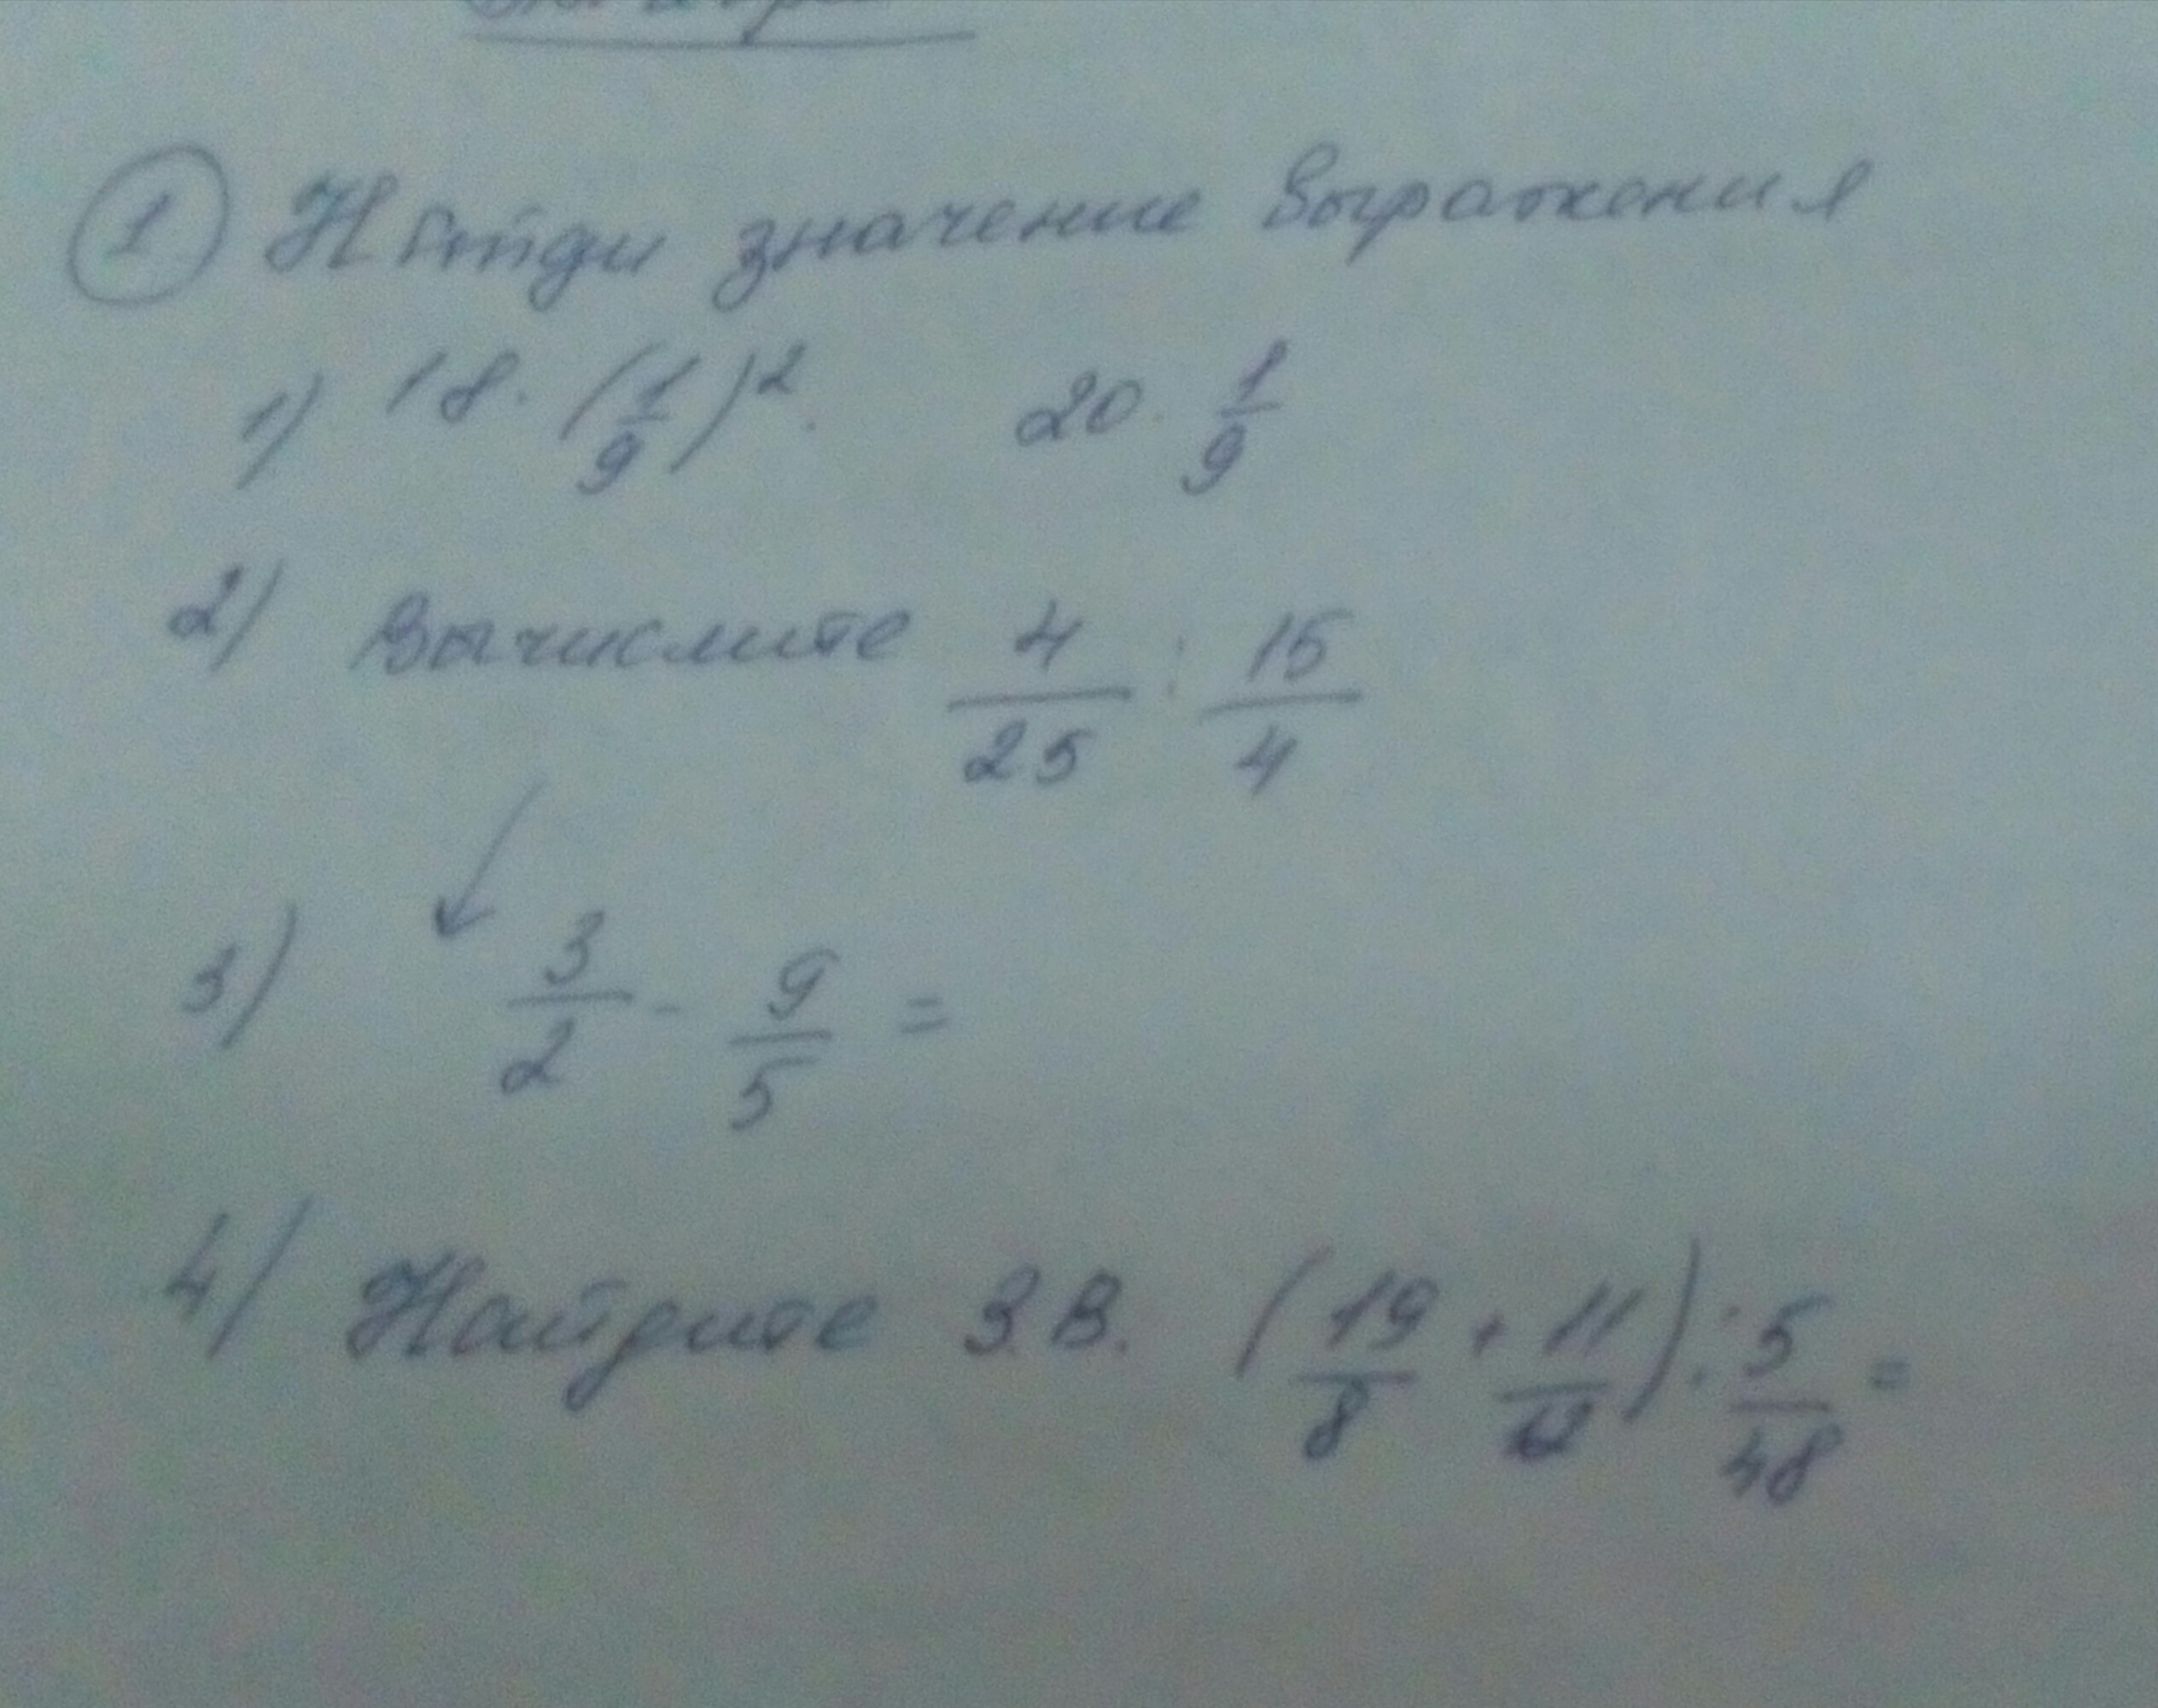 ① Найди значение выражения
1) 18 · (1/9)². 20 · 1/9
2) Вычислите 4/25 : 15/4
3) 3/2 - 9/5 =
4) Найдите З.В. (19/8 + 11/12) : 5/48 =